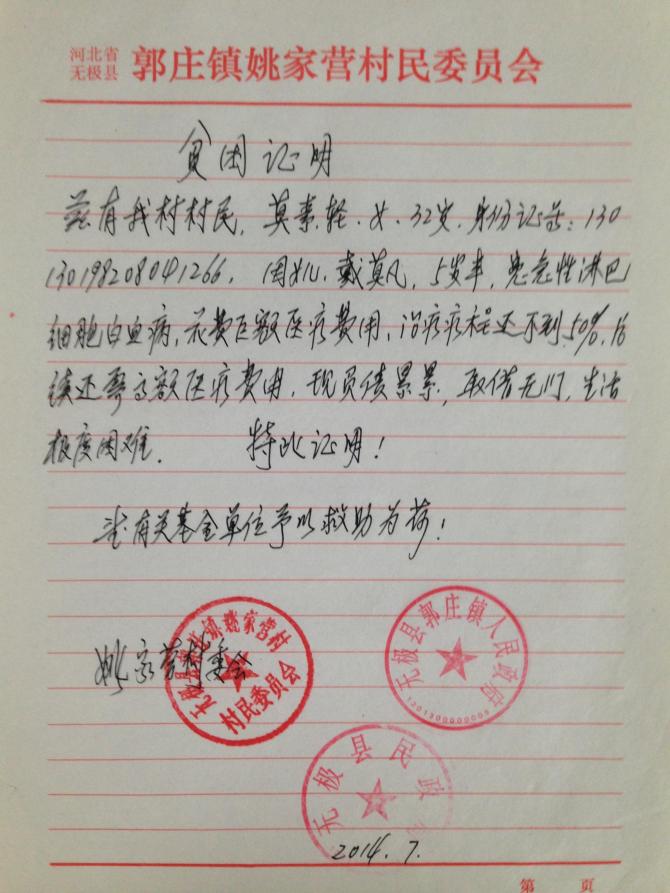 河北省
无极县
郭庄镇姚家营村民委员会
贫困证明
兹有我村村民,莫素轻、女、32岁,身份证号:130
130198208041266,因女儿,戴莫凡,5岁半,患急性淋巴
细胞白血病,花费巨额医疗费用,治疗疗程还不到50%,后
续还需高额医疗费用,现负债累累,取借无门,生活
极度困难. 特此证明!
望有关基金单位予以救助为荷!
姚家营村委会
无极县郭庄镇姚家营村
村民委员会
无极县郭庄镇人民政府
无极县民政局
2014.7.
第 页